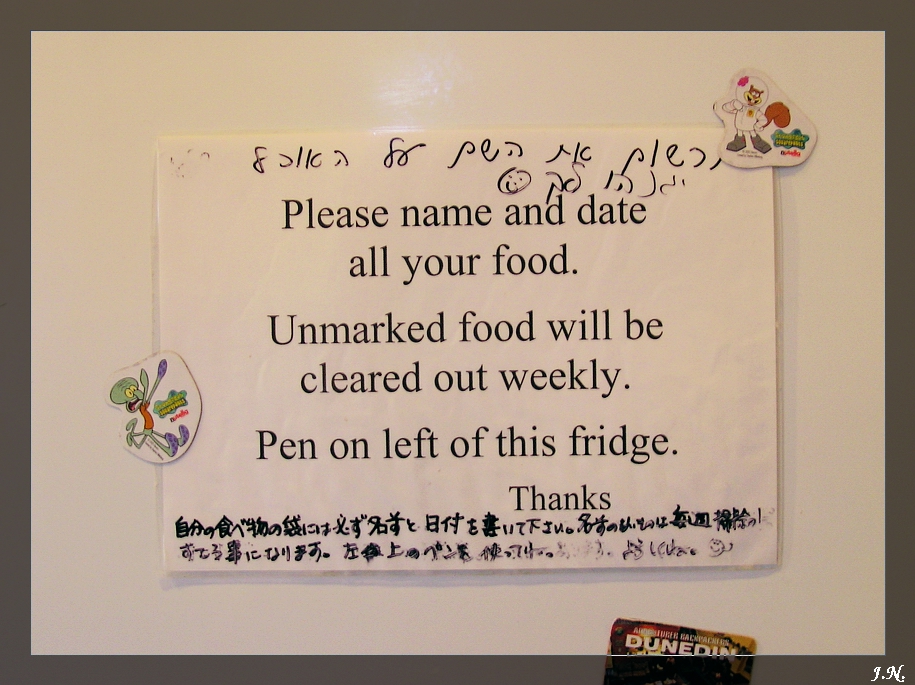 לרשום את השם על האוכל
☺
Please name and date
all your food.
Unmarked food will be
cleared out weekly.
Pen on left of this fridge.
Thanks
自分の食べ物の袋には必ず名前と日付を書いて下さい。名前のないものは毎週掃除の
すてる事になります。左側上のペンを使って
DUNEDIN
J.N.